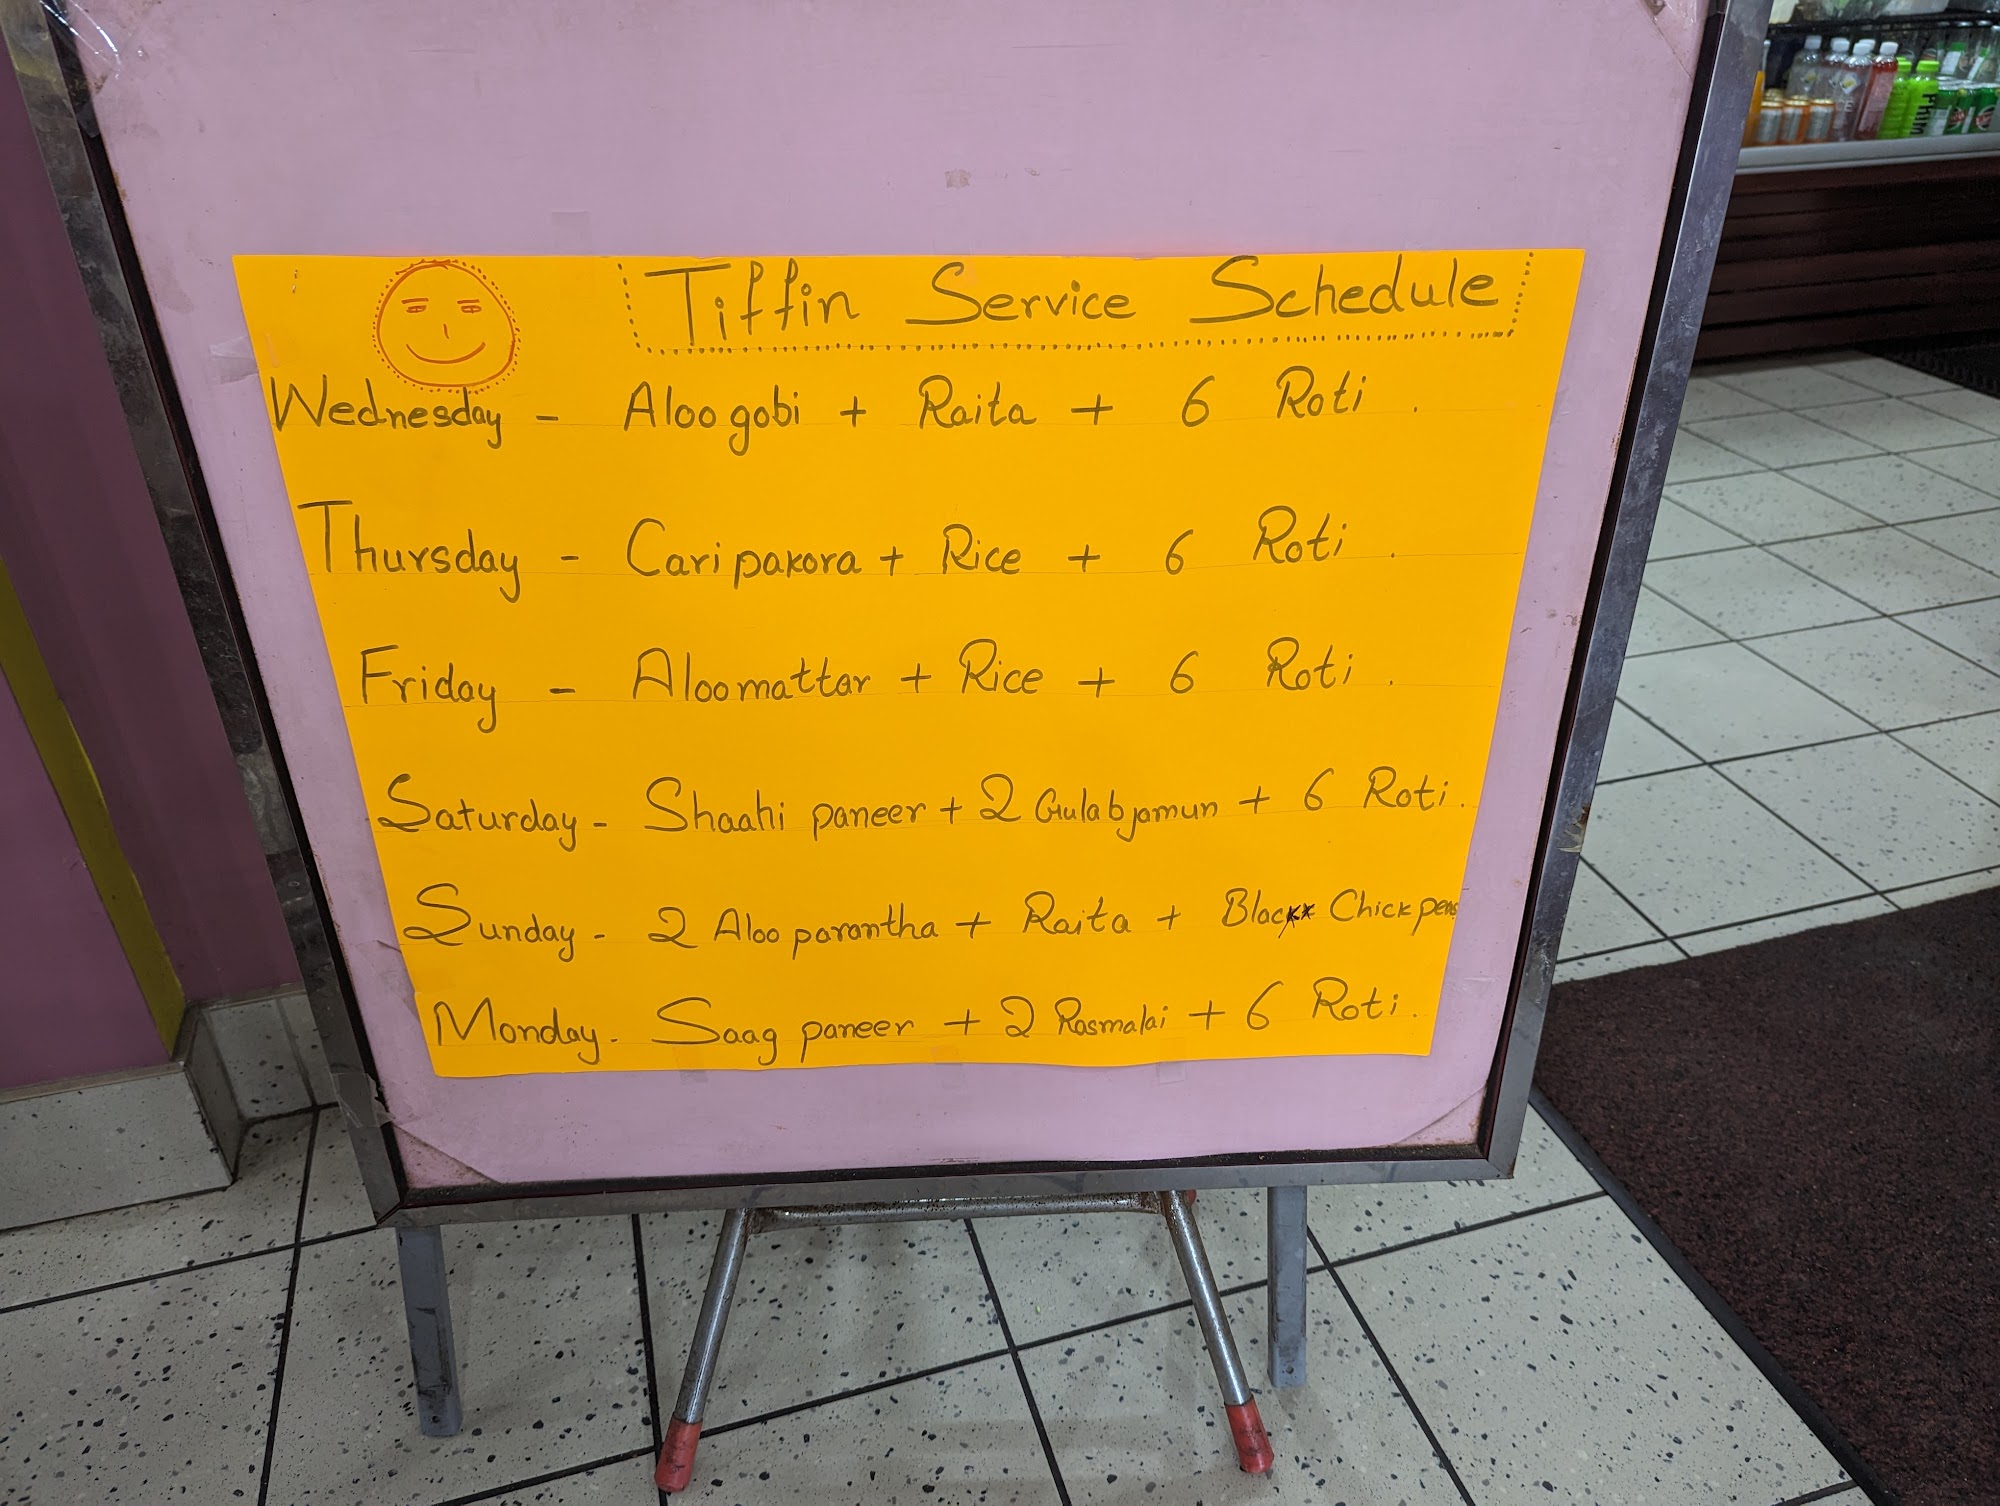 Tiffin Service Schedule
Wednesday - Aloo gobi + Raita + 6 Roti .
Thursday - Cari pakora + Rice + 6 Roti .
Friday - Aloomattar + Rice + 6 Roti .
Saturday - Shaahi paneer + 2 Gulabjamun + 6 Roti .
Sunday - 2 Aloo parantha + Raita + Black Chickpeas
Monday - Saag paneer + 2 Rasmalai + 6 Roti .